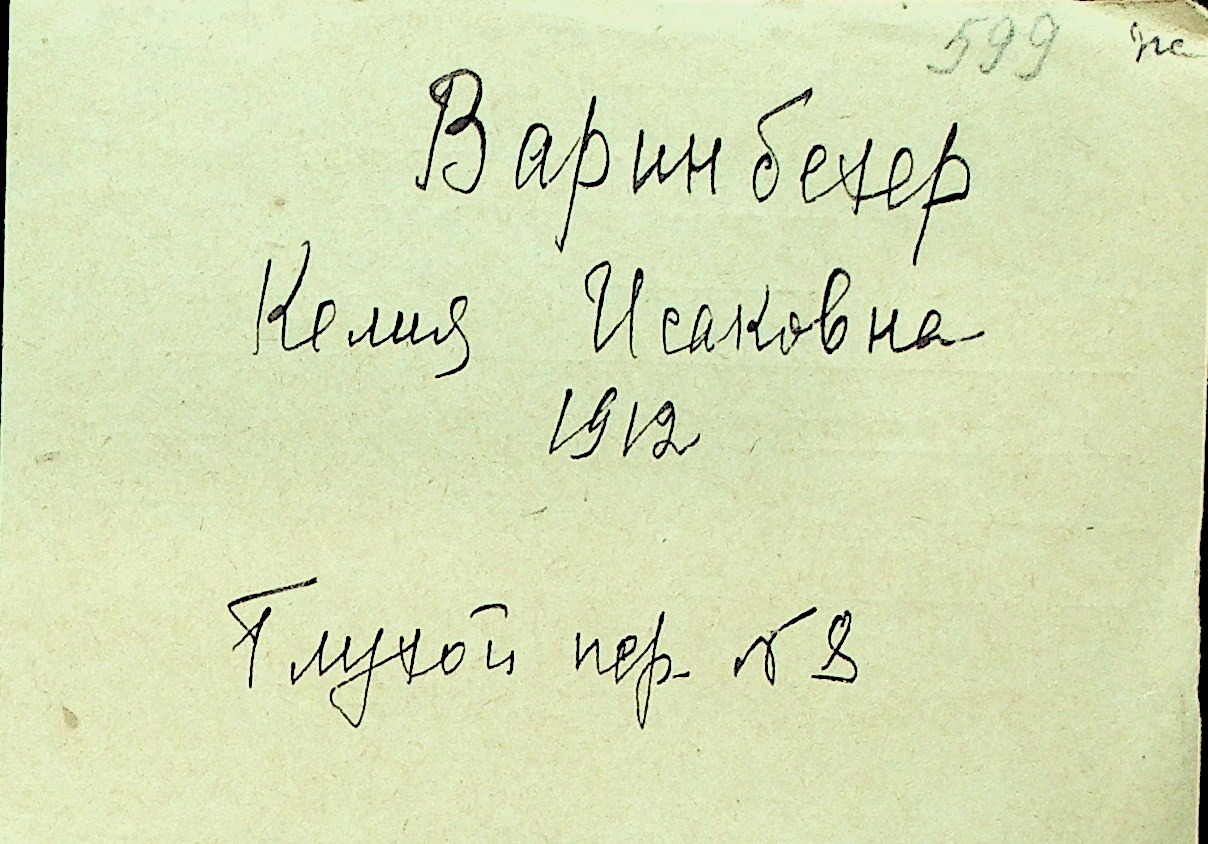 599
Варинбехер
Келия Исаковна
1912
Глухой пер. № 8